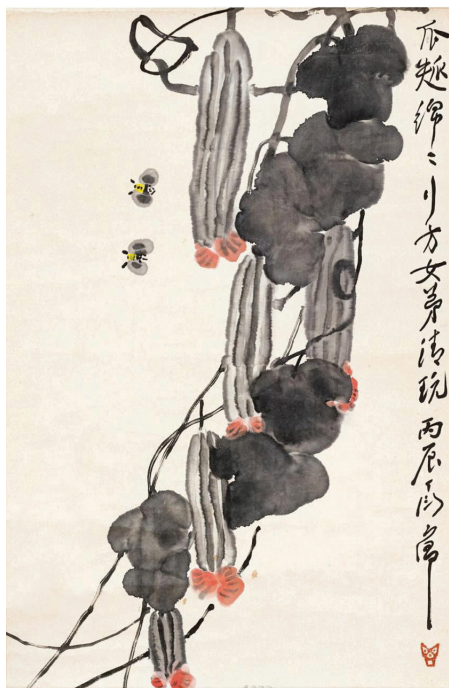 瓜瓞綿〻方女弟清玩丙辰丁衍庸